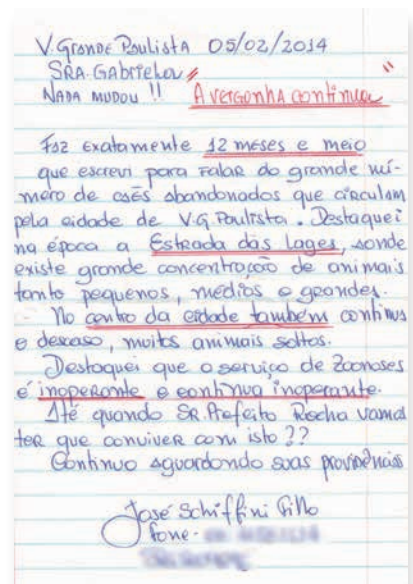 V. Grande Paulista 05/02/2014
SRA. Gabriela
NADA MUDOU !! "A vergonha continua"
Faz exatamente 12 meses e meio
que escrevi para falar do grande nú-
mero de cães abandonados que circulam
pela cidade de V.G. Paulista. Destaquei
na época a Estrada das Lages, aonde
existe grande concentração de animais
tanto pequenos, médios e grandes.
No centro da cidade também continua
o descaso, muitos animais soltos.
Destaquei que o serviço de Zoonoses
é inoperante e continua inoperante.
Até quando SR. Prefeito Rocha vamos
ter que conviver com isto ??
Continuo aguardando suas providências
José Schiffini Filho
fone -